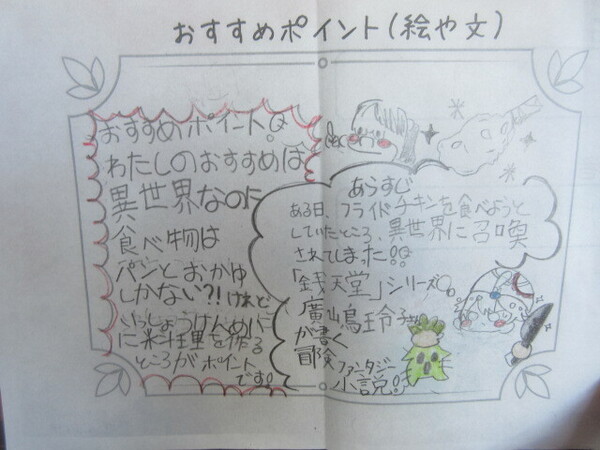 おすすめポイント(絵や文)
おすすめポイント。
わたしのおすすめは
異世界なのに
食べ物は
パンとおかゆ
しかない?!けれど
いっしょうけんめい
に料理を作る
ところがポイント
です!
あらすじ
ある日、フライドチキンを食べようと
していたところ、異世界に召喚
されてしまった!!
「銭天堂」シリーズの
廣嶋玲子
が書く
冒険ファンタジー
小説!